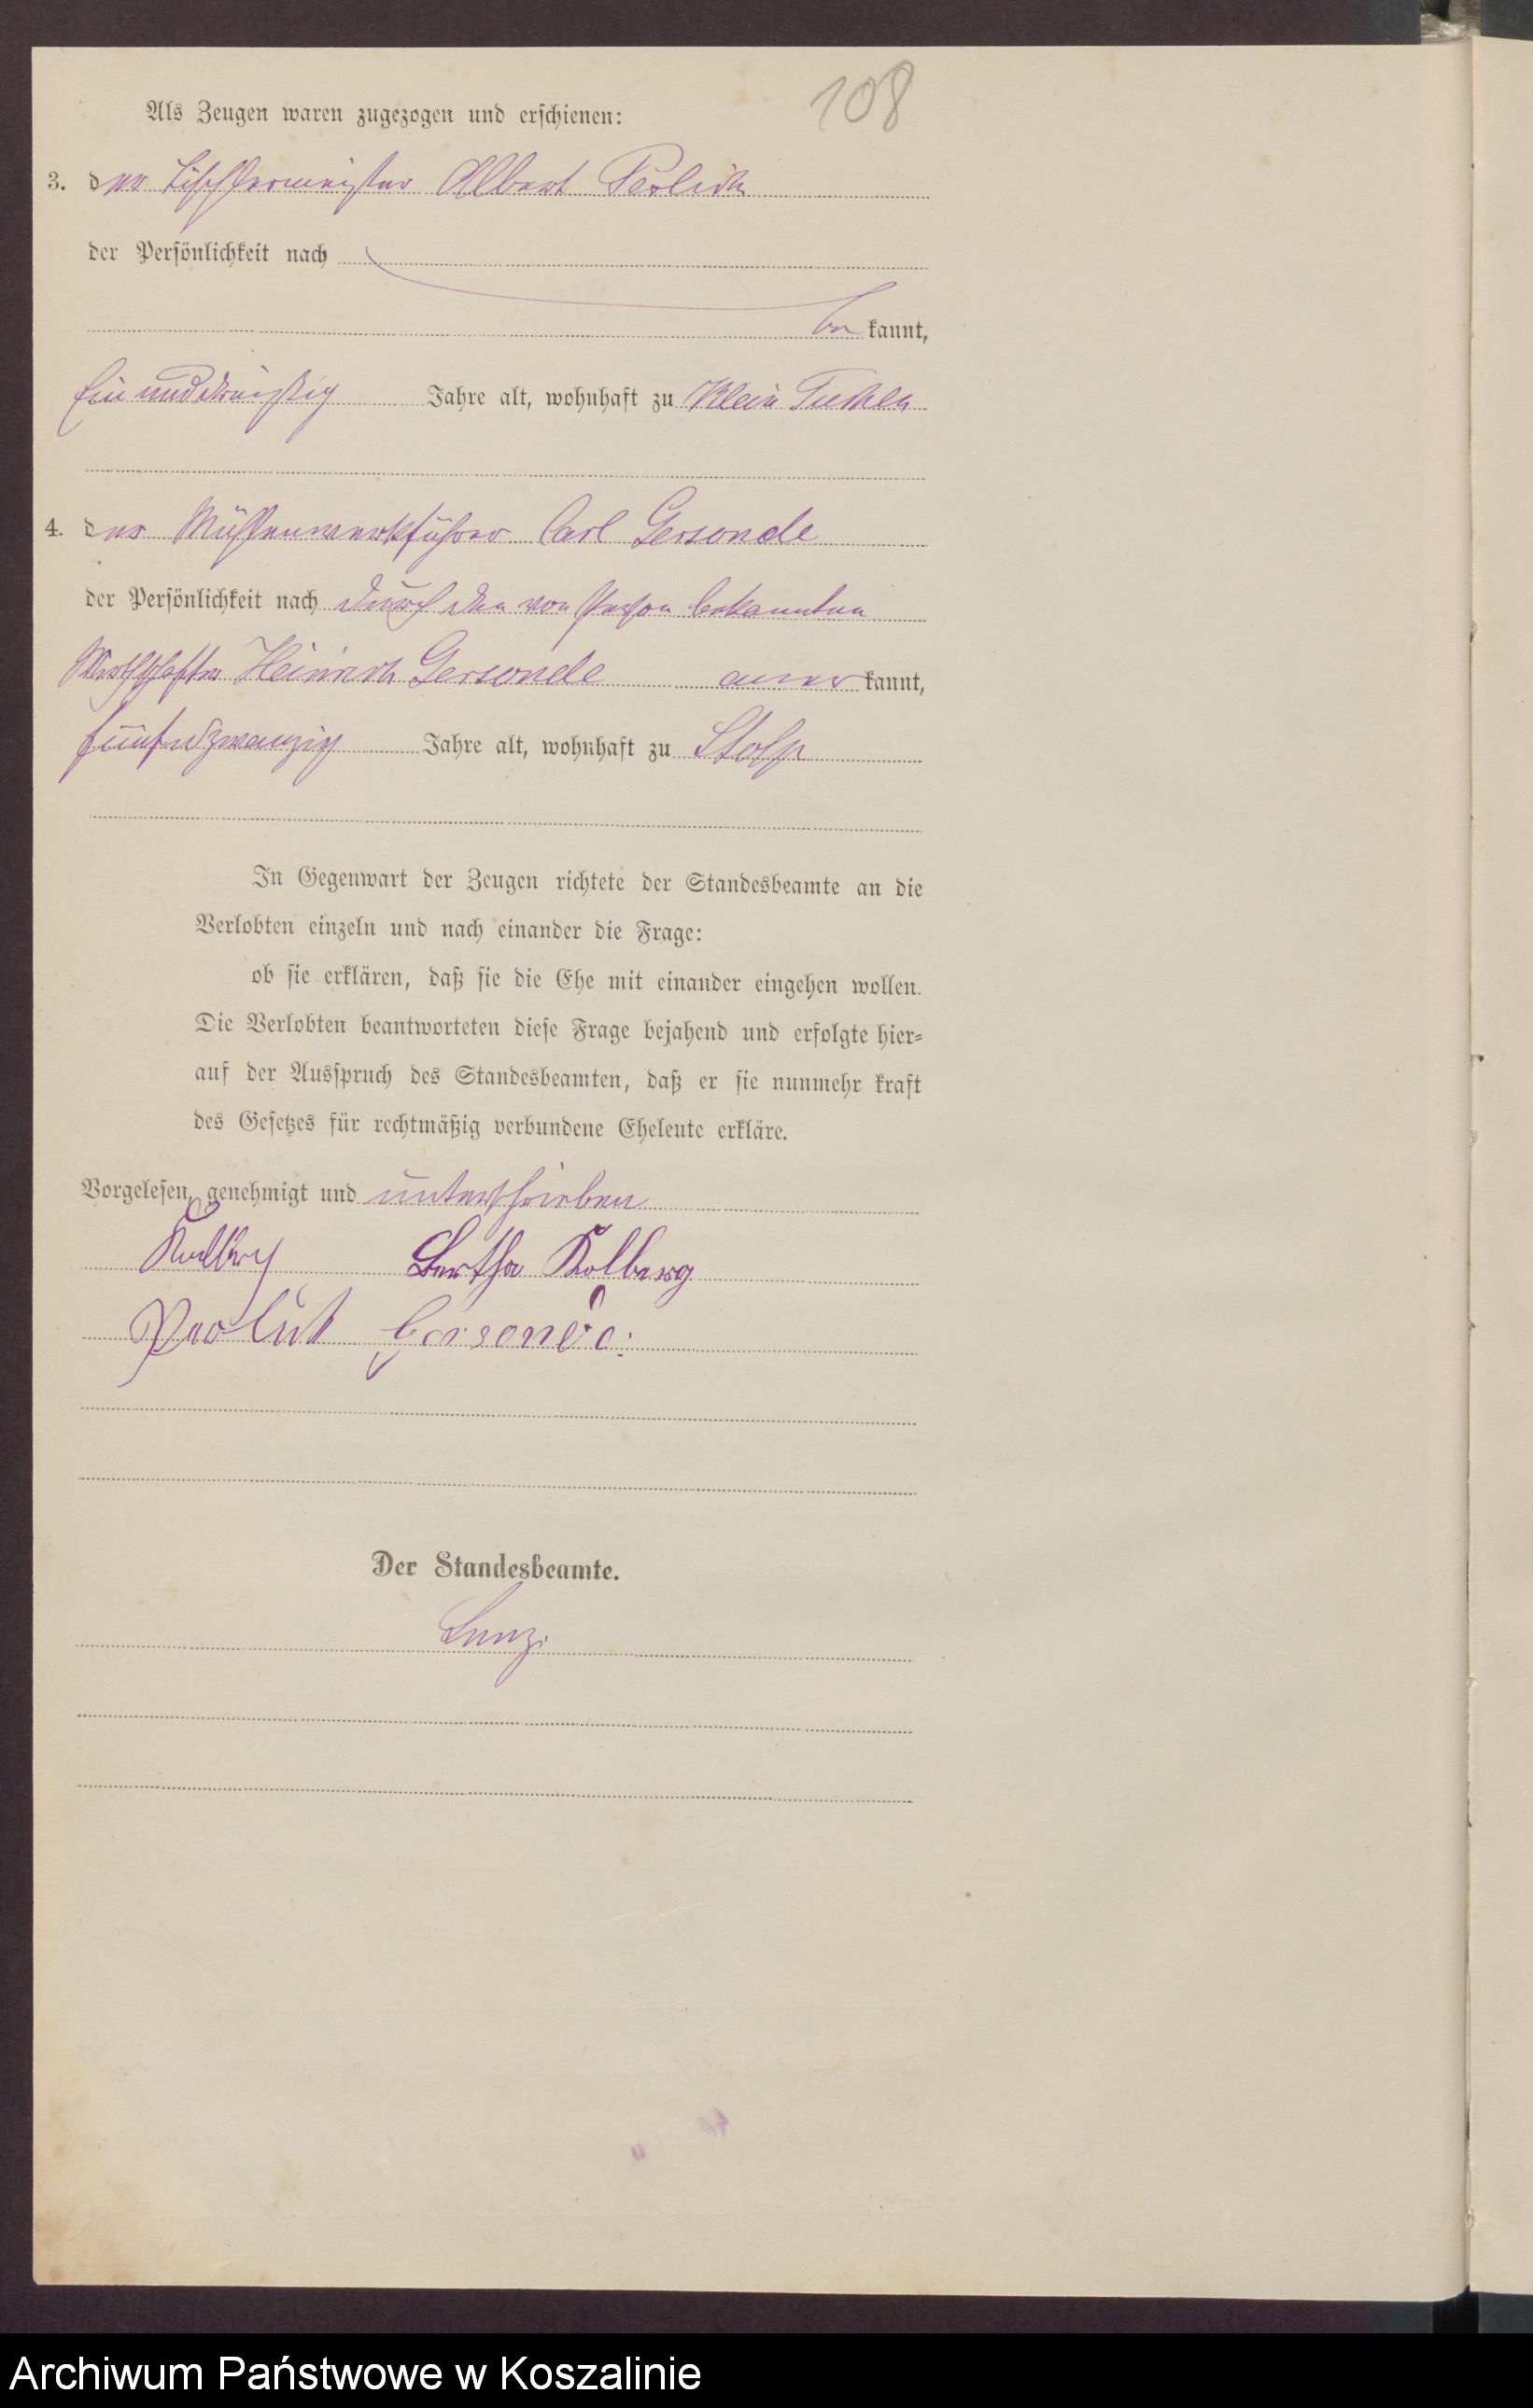 108
Als Zeugen waren zugezogen und erschienen:
3. der Tischlermeister Albert
der Persönlichkeit nach
be kannt,
Ein und dreißig Jahre alt, wohnhaft zu Klein Tuchen
4. der Mühlenwerkführer Carl Gersonde
der Persönlichkeit nach durch den von Person bekannten
Heinrich Gersonde aner kannt,
fünfundzwanzig Jahre alt, wohnhaft zu Stolp
In Gegenwart der Zeugen richtete der Standesbeamte an die
Verlobten einzeln und nach einander die Frage:
ob sie erklären, daß sie die Ehe mit einander eingehen wollen.
Die Verlobten beantworteten diese Frage bejahend und erfolgte hier-
auf der Ausspruch des Standesbeamten, daß er sie nunmehr kraft
des Gesetzes für rechtmäßig verbundene Eheleute erkläre.
Vorgelesen, genehmigt und unterschrieben
Bertha Kolberg
Gersonde
Der Standesbeamte.
Archiwum Państwowe w Koszalinie